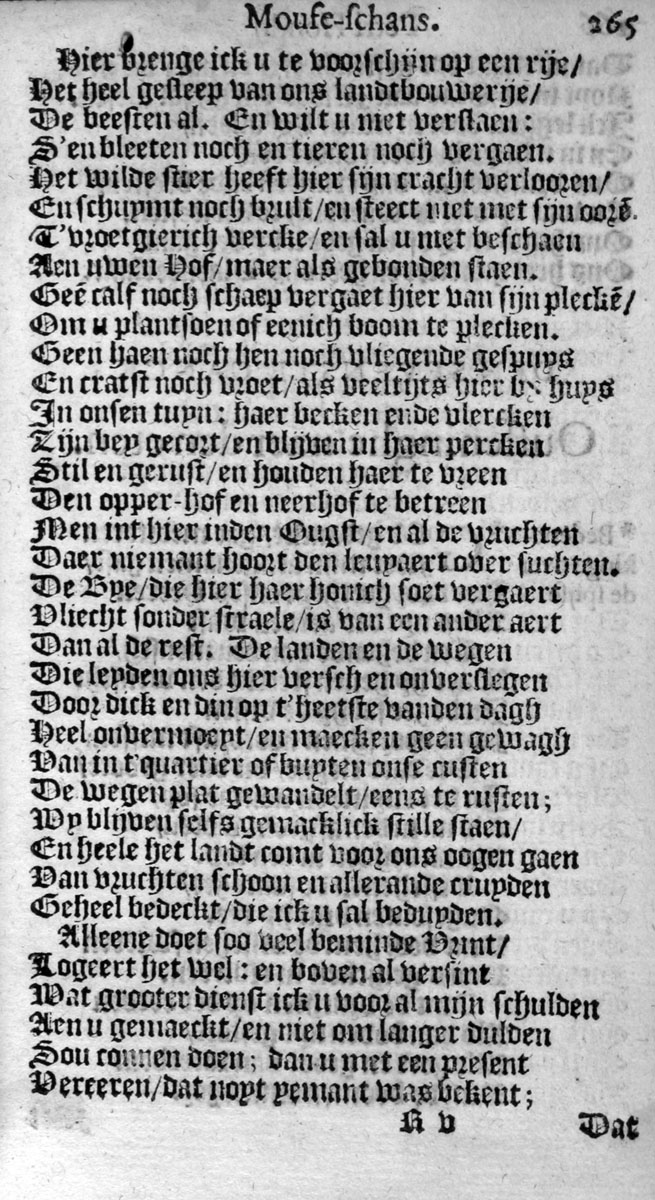 Mouse-schans. 265
Hier brenge ick u te voorschijn op een rije/
Het heel gesleep van ons landtbouwerije/
De beesten al. En wilt u niet verslaen:
S'en bleeten noch en tieren noch vergaen.
Het wilde stier heeft hier sijn cracht verlooren/
En schuymt noch brult/en steect niet met sijn oorē.
T'vroetgierich vercke/en sal u niet beschaen
Aen uwen Hof/maer als gebonden staen.
Geē calf noch schaep vergaet hier van sijn pleckē/
Om u plantsoen of eenich boom te plecken.
Geen haen noch hen noch vliegende gespuys
En cratst noch vroet/als veeltijts hier by huys
In onsen tuyn: haer becken ende vlercken
Zijn bey gecort/en blijven in haer percken
Stil en gerust/en houden haer te vreen
Den opper-hof en neerhof te betreen
Men int hier inden Ougst/en al de vruchten
Daer niemant hoort den leuyaert over suchten.
De Bye/die hier haer honich soet vergaert
Vliecht sonder straele/is van een ander aert
Dan al de rest. De landen en de wegen
Die leyden ons hier versch en onverslegen
Door dick en din op t'heetste vanden dagh
Heel onvermoeyt/en maecken geen gewagh
Van in t'quartier of buyten onse custen
De wegen plat gewandelt/eens te rusten;
Wy blijven selfs gemacklick stille staen/
En heele het landt comt voor ons oogen gaen
Van vruchten schoon en allerande cruyden
Geheel bedeckt/die ick u sal beduyden.
Alleene doet soo veel beminde Vrint/
Logeert het wel: en boven al versint
Wat grooter dienst ick u voor al mijn schulden
Aen u gemaeckt/en niet om langer dulden
Sou connen doen; dan u met een present
Vereeren/dat noyt yemant was bekent;
R v Dat